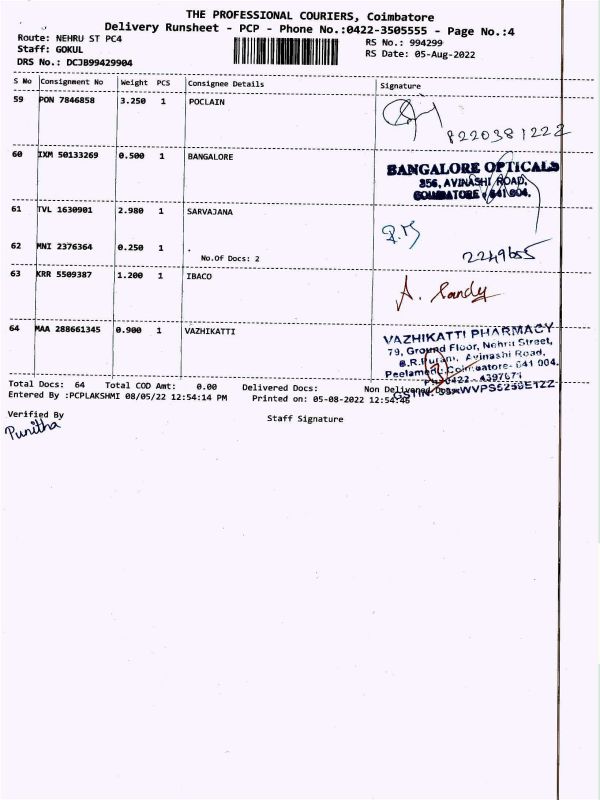 THE PROFESSIONAL COURIERS, Coimbatore
Delivery Runsheet - PCP - Phone No.:0422-3505555 - Page No.:4
Route: NEHRU ST PC4 RS No.: 994299
Staff: GOKUL RS Date: 05-Aug-2022
DRS No.: DCJB99429904
S No Consignment No Weight PCS Consignee Details Signature
59 PON 7846858 3.250 1 POCLAIN
8220381222
60 IXM 50133269 0.500 1 BANGALORE
BANGALORE OPTICALS
356, AVINASHI ROAD,
COIMBATORE - 641 004.
61 TVL 1630901 2.980 1 SARVAJANA
62 MNI 2376364 0.250 1 .
No.Of Docs: 2
2249655
63 KRR 5509387 1.200 1 IBACO
A. Sandy
64 MAA 288661345 0.900 1 VAZHIKATTI
VAZHIKATTI PHARMACY
79, Ground Floor, Nehru Street,
B.R.Puram, Avinashi Road,
Peelamedu, Coimbatore- 641 004.
Total Docs: 64 Total COD Amt: 0.00 Delivered Docs: Non Delivered Docs:
Entered By :PCPLAKSHMI 08/05/22 12:54:14 PM Printed on: 05-08-2022 12:54:46
Verified By Staff Signature
Punitha